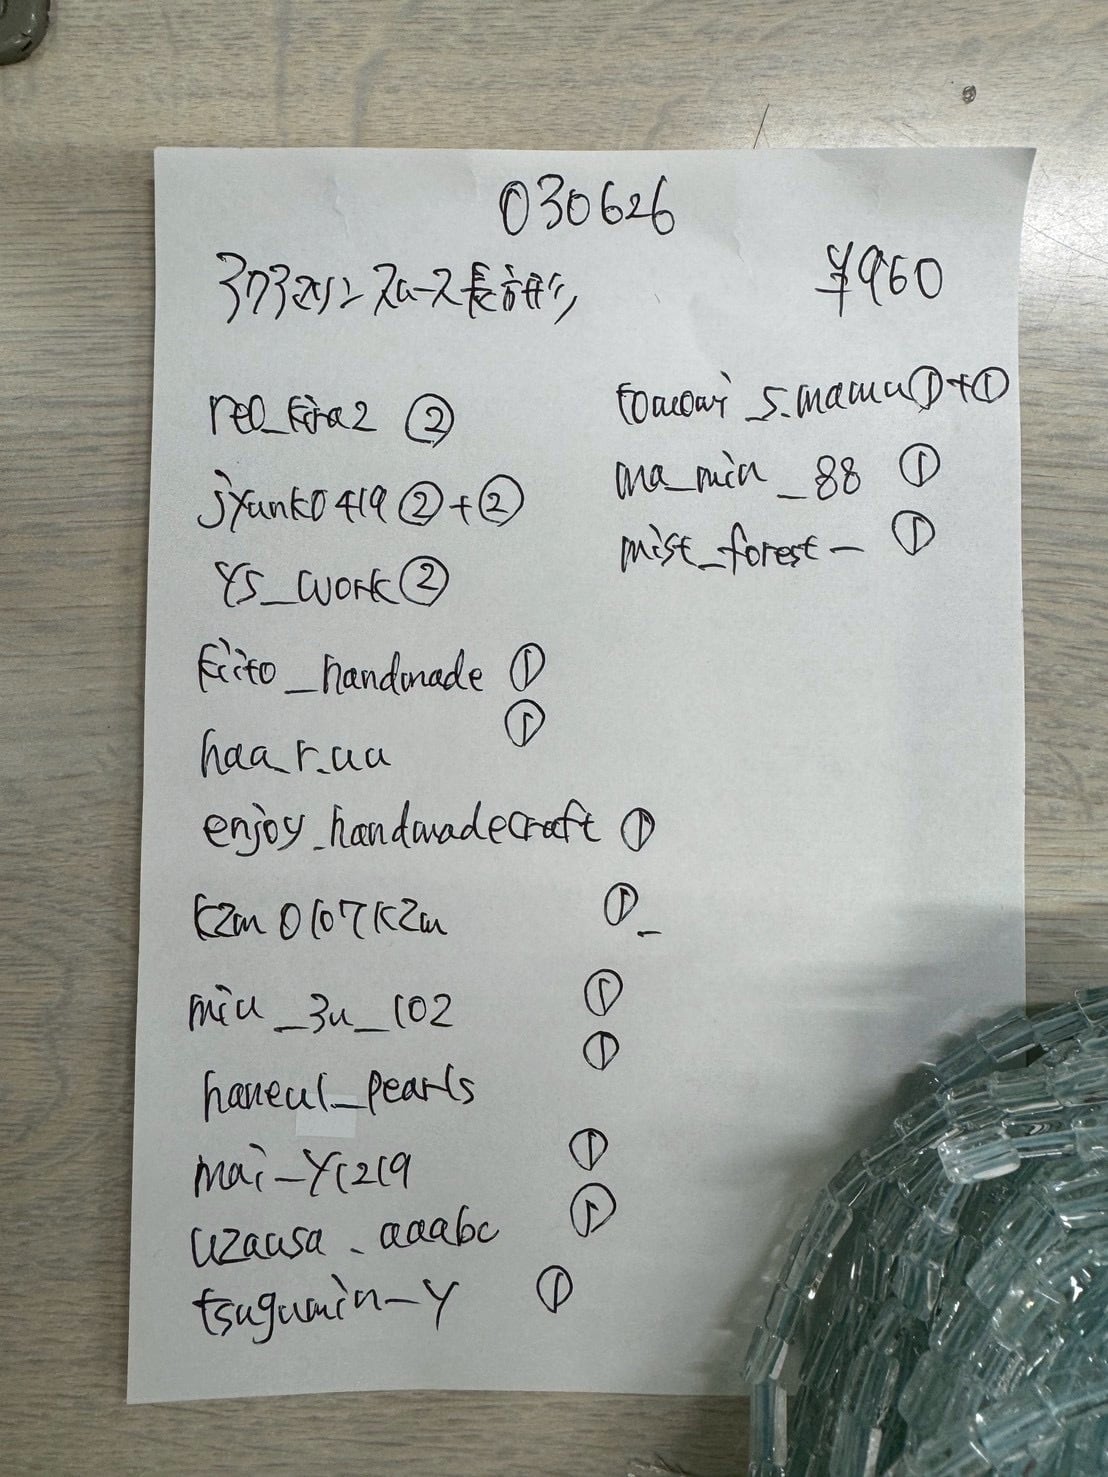 030626
アクアマリンスムース長方形 ¥960
reo_kira2 ②
jyunko419 ②+②
ys_work ②
kiito_handmade ①
haa_r.uu ①
enjoy_handmadecraft ①
kzm0107kzm ①_
miu_3u_102 ①
haneul_pearls ①
mai-y1219 ①
uzausa_aaabc ①
tsugumin-y ①
s.mama ①+①
ma_min_88 ①
mist_forest- ①